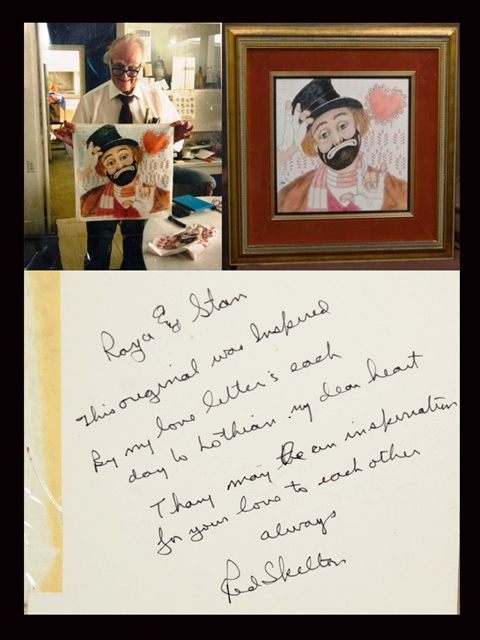 Roya & Stan
This original was Inspired
By my love letter's each
day to Lothian. my dear heart
Thay may be an inspernation
for your love to each other
always
Red Skelton